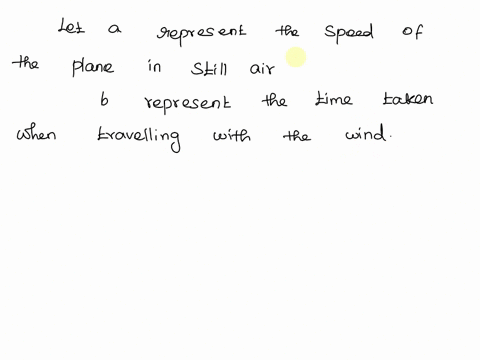 Let a represent the speed of
the plane in still air
b represent the time taken
when travelling with the wind.